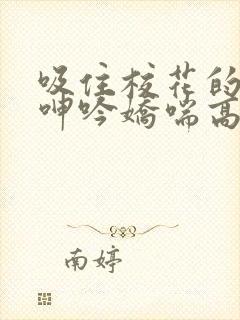 吸住校花的
呻吟娇喘高
南婷